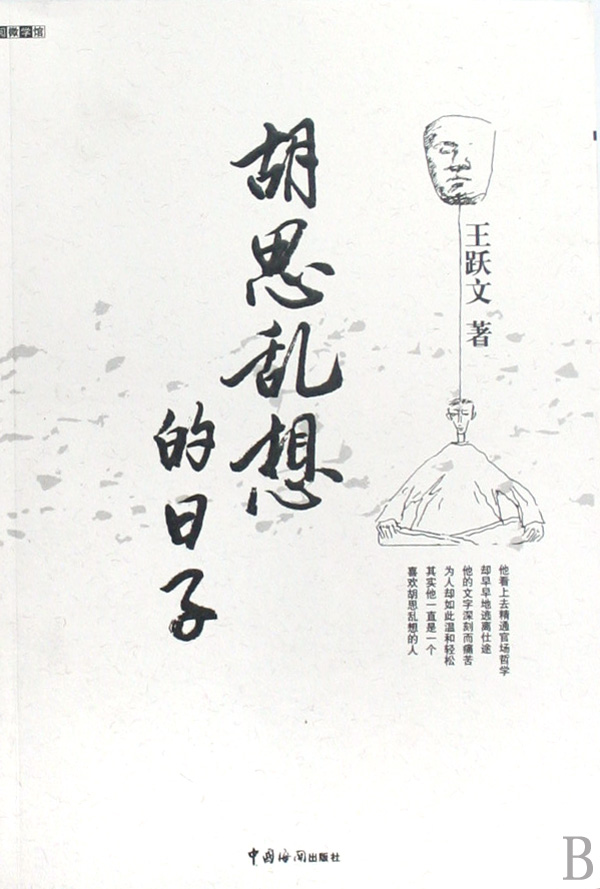 微学馆
胡思乱想
的日子
王跃文 著
他看上去精通官场哲学
却早早地逃离仕途
他的文字深刻而痛苦
为人却如此温和轻松
其实他一直是一个
喜欢胡思乱想的人
中国海关出版社
B